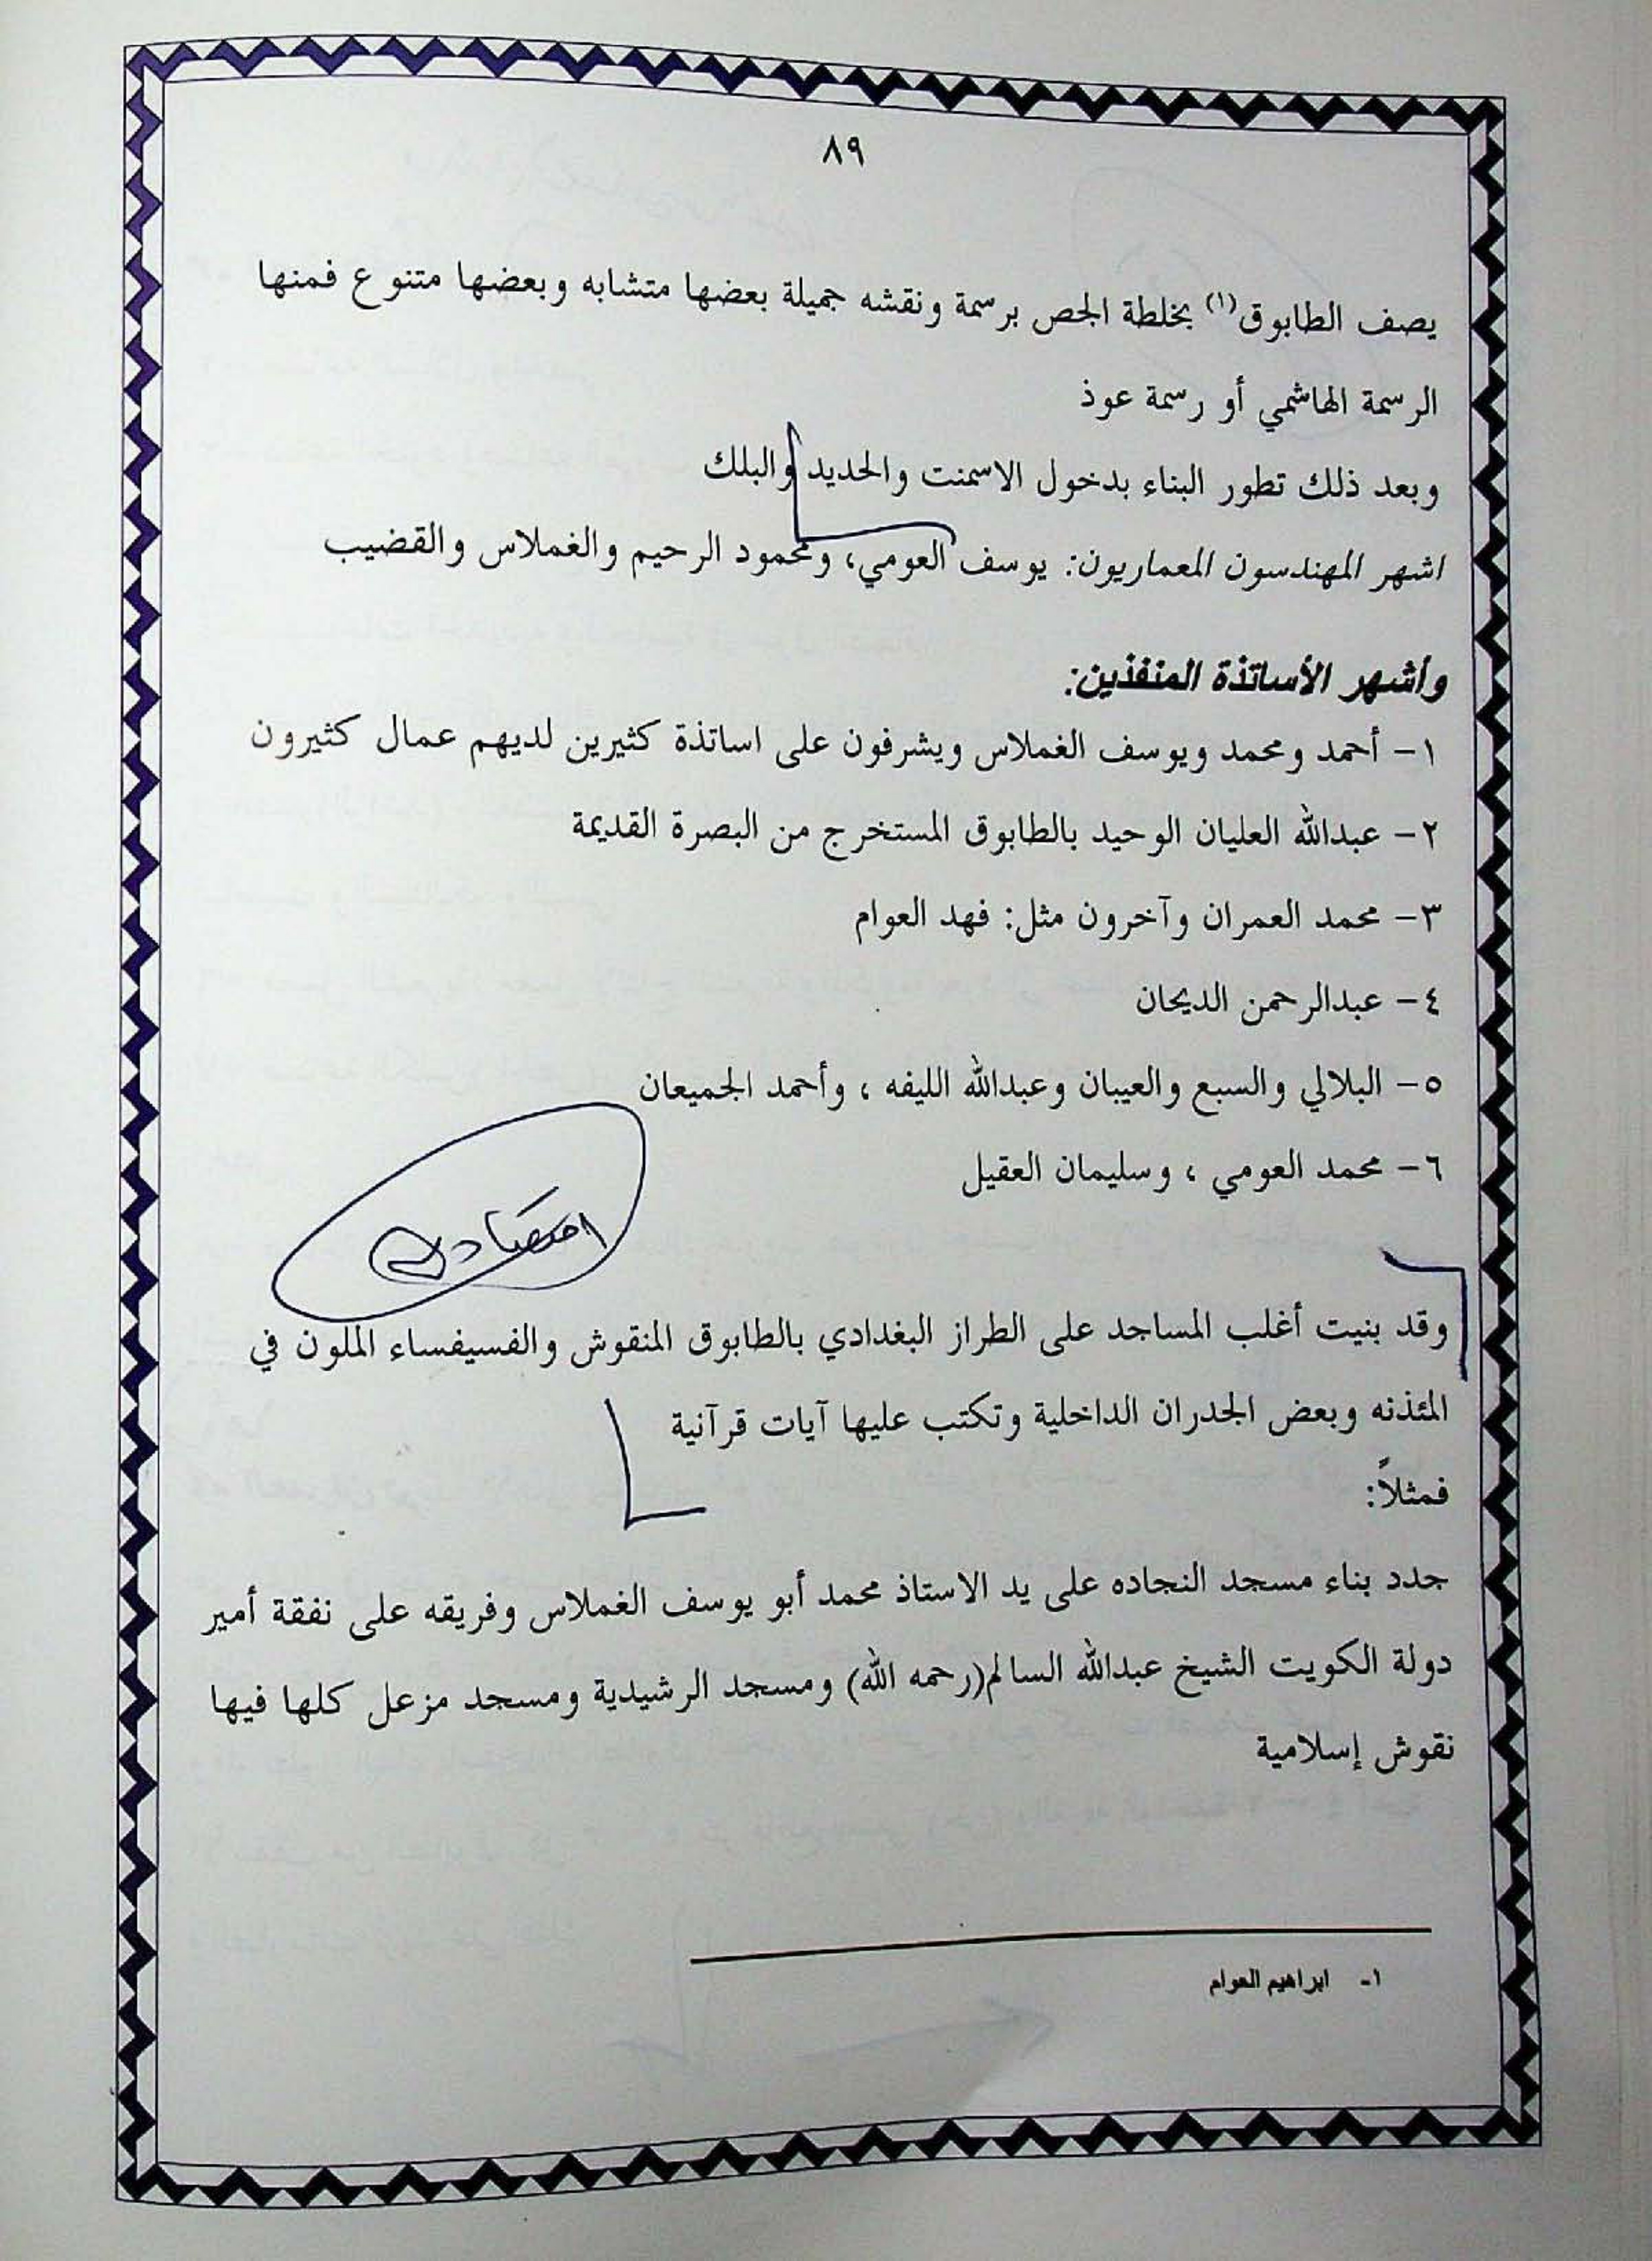 ٨٩
يصف الطابوق(١) بخلطة الجص برسمة ونقشه جميلة بعضها متشابه وبعضها متنوع فمنها
الرسمة الهاشمي أو رسمة عوذ
وبعد ذلك تطور البناء بدخول الاسمنت والحديد والبلك
اشهر المهندسون المعماريون: يوسف العومي، ومحمود الرحيم والغملاس والقضيب
وأشهر الأساتذة المنفذين:
١- أحمد ومحمد ويوسف الغملاس ويشرفون على اساتذة كثيرين لديهم عمال كثيرون
٢- عبدالله العليان الوحيد بالطابوق المستخرج من البصرة القديمة
٣- محمد العمران وآخرون مثل: فهد العوام
٤- عبدالرحمن الديحان
٥- البلالي والسبع والعيبان وعبدالله الليفه ، وأحمد الجميعان
٦- محمد العومي ، وسليمان العقيل
اقتصادي
وقد بنيت أغلب المساجد على الطراز البغدادي بالطابوق المنقوش والفسيفساء الملون في
المئذنه وبعض الجدران الداخلية وتكتب عليها آيات قرآنية
فمثلاً:
جدد بناء مسجد النجاده على يد الاستاذ محمد أبو يوسف الغملاس وفريقه على نفقة أمير
دولة الكويت الشيخ عبدالله السالم(رحمه الله) ومسجد الرشيدية ومسجد مزعل كلها فيها
نقوش إسلامية
١- ابراهيم العوام